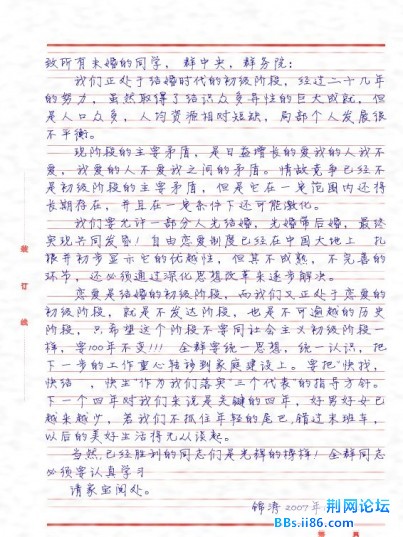 致所有未婚的同学, 群中央, 群务院:
我们正处于结婚时代的初级阶段, 经过二十九年
的努力, 虽然取得了结识众多异性的巨大成就, 但
是人口众多, 人均资源相对短缺, 局部个人发展很
不平衡。
现阶段的主要矛盾, 是日益增长的爱我的人我不
爱, 我爱的人不爱我之间的矛盾。情敌竞争已经不
是初级阶段的主要矛盾, 但是它在一定范围内还将
长期存在, 并且在一定条件下还可能激化。
我们要允许一部分人先结婚, 先婚带后婚, 最终
实现共同发婚! 自由恋爱制度已经在中国大地上 扎
根并初步显示它的优越性, 但其不成熟, 不完善的
环节, 还必须通过深化思想改革来逐步解决。
恋爱是结婚的初级阶段, 而我们又正处于恋爱的
初级阶段, 就是不发达阶段, 也是不可逾越的历史
阶段, 只希望这个阶段不要同社会主义初级阶段一
样, 要100年不变!!! 全群要统一思想, 统一认识, 把
下一步的工作重心转移到家庭建设上。要把"快找,
快结 , 快生"作为我们落实"三个代表"的指导方针。
下一个四年对我们来说是关键的四年, 好男好女已
越来越少, 若我们不抓住年轻的尾巴, 错过末班车,
以后的美好生活将无从谈起。
当然, 已经胜利的同志们是光辉的榜样! 全群同志
必须要认真学习
请家宝阅处。
锦涛 2007年
装
订
线
荆网论坛
BBs.ii86.com